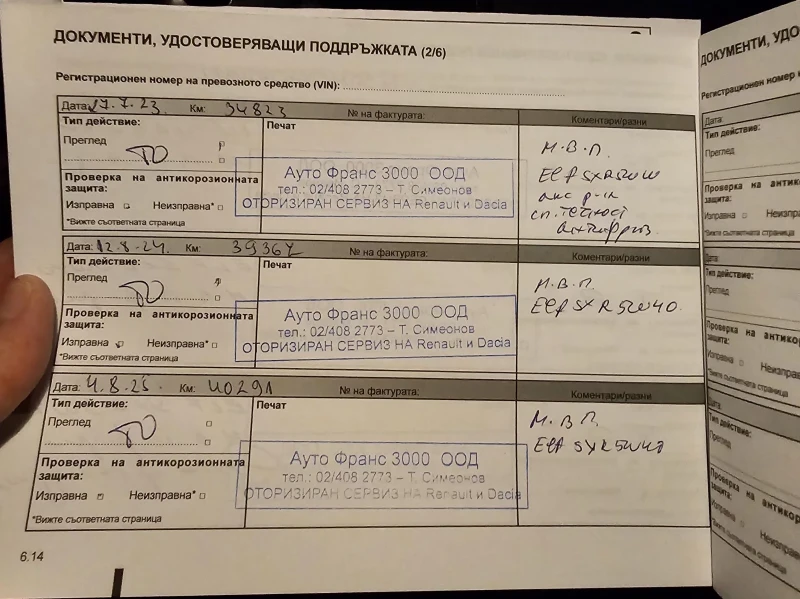 ДОКУМЕНТИ, УДОСТОВЕРЯВАЩИ ПОДДРЪЖКАТА (2/6)
Регистрационен номер на превозното средство (VIN):
Дата: 17.7.23 Км: 34823 № на фактурата: Коментари/разни
Тип действие:
Печат
Преглед
ТО
Проверка на антикорозионната защита:
Изправна Неизправна*
*Вижте съответната страница
Ауто Франс 3000 ООД
тел.: 02/408 2773 – Т. Симеонов
ОТОРИЗИРАН СЕРВИЗ НА Renault и Dacia
М.В.П.
Elf SXR 5W40
сп. течност
антифриз
Дата: 12.8.24. Км: № на фактурата: Коментари/разни
Тип действие:
Печат
Преглед
ТО
Проверка на антикорозионната защита:
Изправна Неизправна*
*Вижте съответната страница
Ауто Франс 3000 ООД
тел.: 02/408 2773 – Т. Симеонов
ОТОРИЗИРАН СЕРВИЗ НА Renault и Dacia
М.В.П.
Elf SXR 5W40.
Дата: 4.8.25. Км: 40291 № на фактурата: Коментари/разни
Тип действие:
Печат
Преглед
ТО
Проверка на антикорозионната защита:
Изправна Неизправна*
*Вижте съответната страница
Ауто Франс 3000 ООД
тел.: 02/408 2773 – Т. Симеонов
ОТОРИЗИРАН СЕРВИЗ НА Renault и Dacia
М.В.П.
Elf SXR 5W40
6.14
ДОКУМЕНТИ, УДО
Регистрационен номер
Дата:
Тип действие:
Преглед
Проверка на антикоро
защита:
Изправна Неизправн
*Вижте съответната страница
Дата:
Тип действие:
Преглед
Проверка на антикор
защита:
Изправна Неизправ
*Вижте съответната страница
Дата:
Тип действие:
Преглед
Проверка на антик
защита:
Изправна Неиз
*Вижте съответната стра